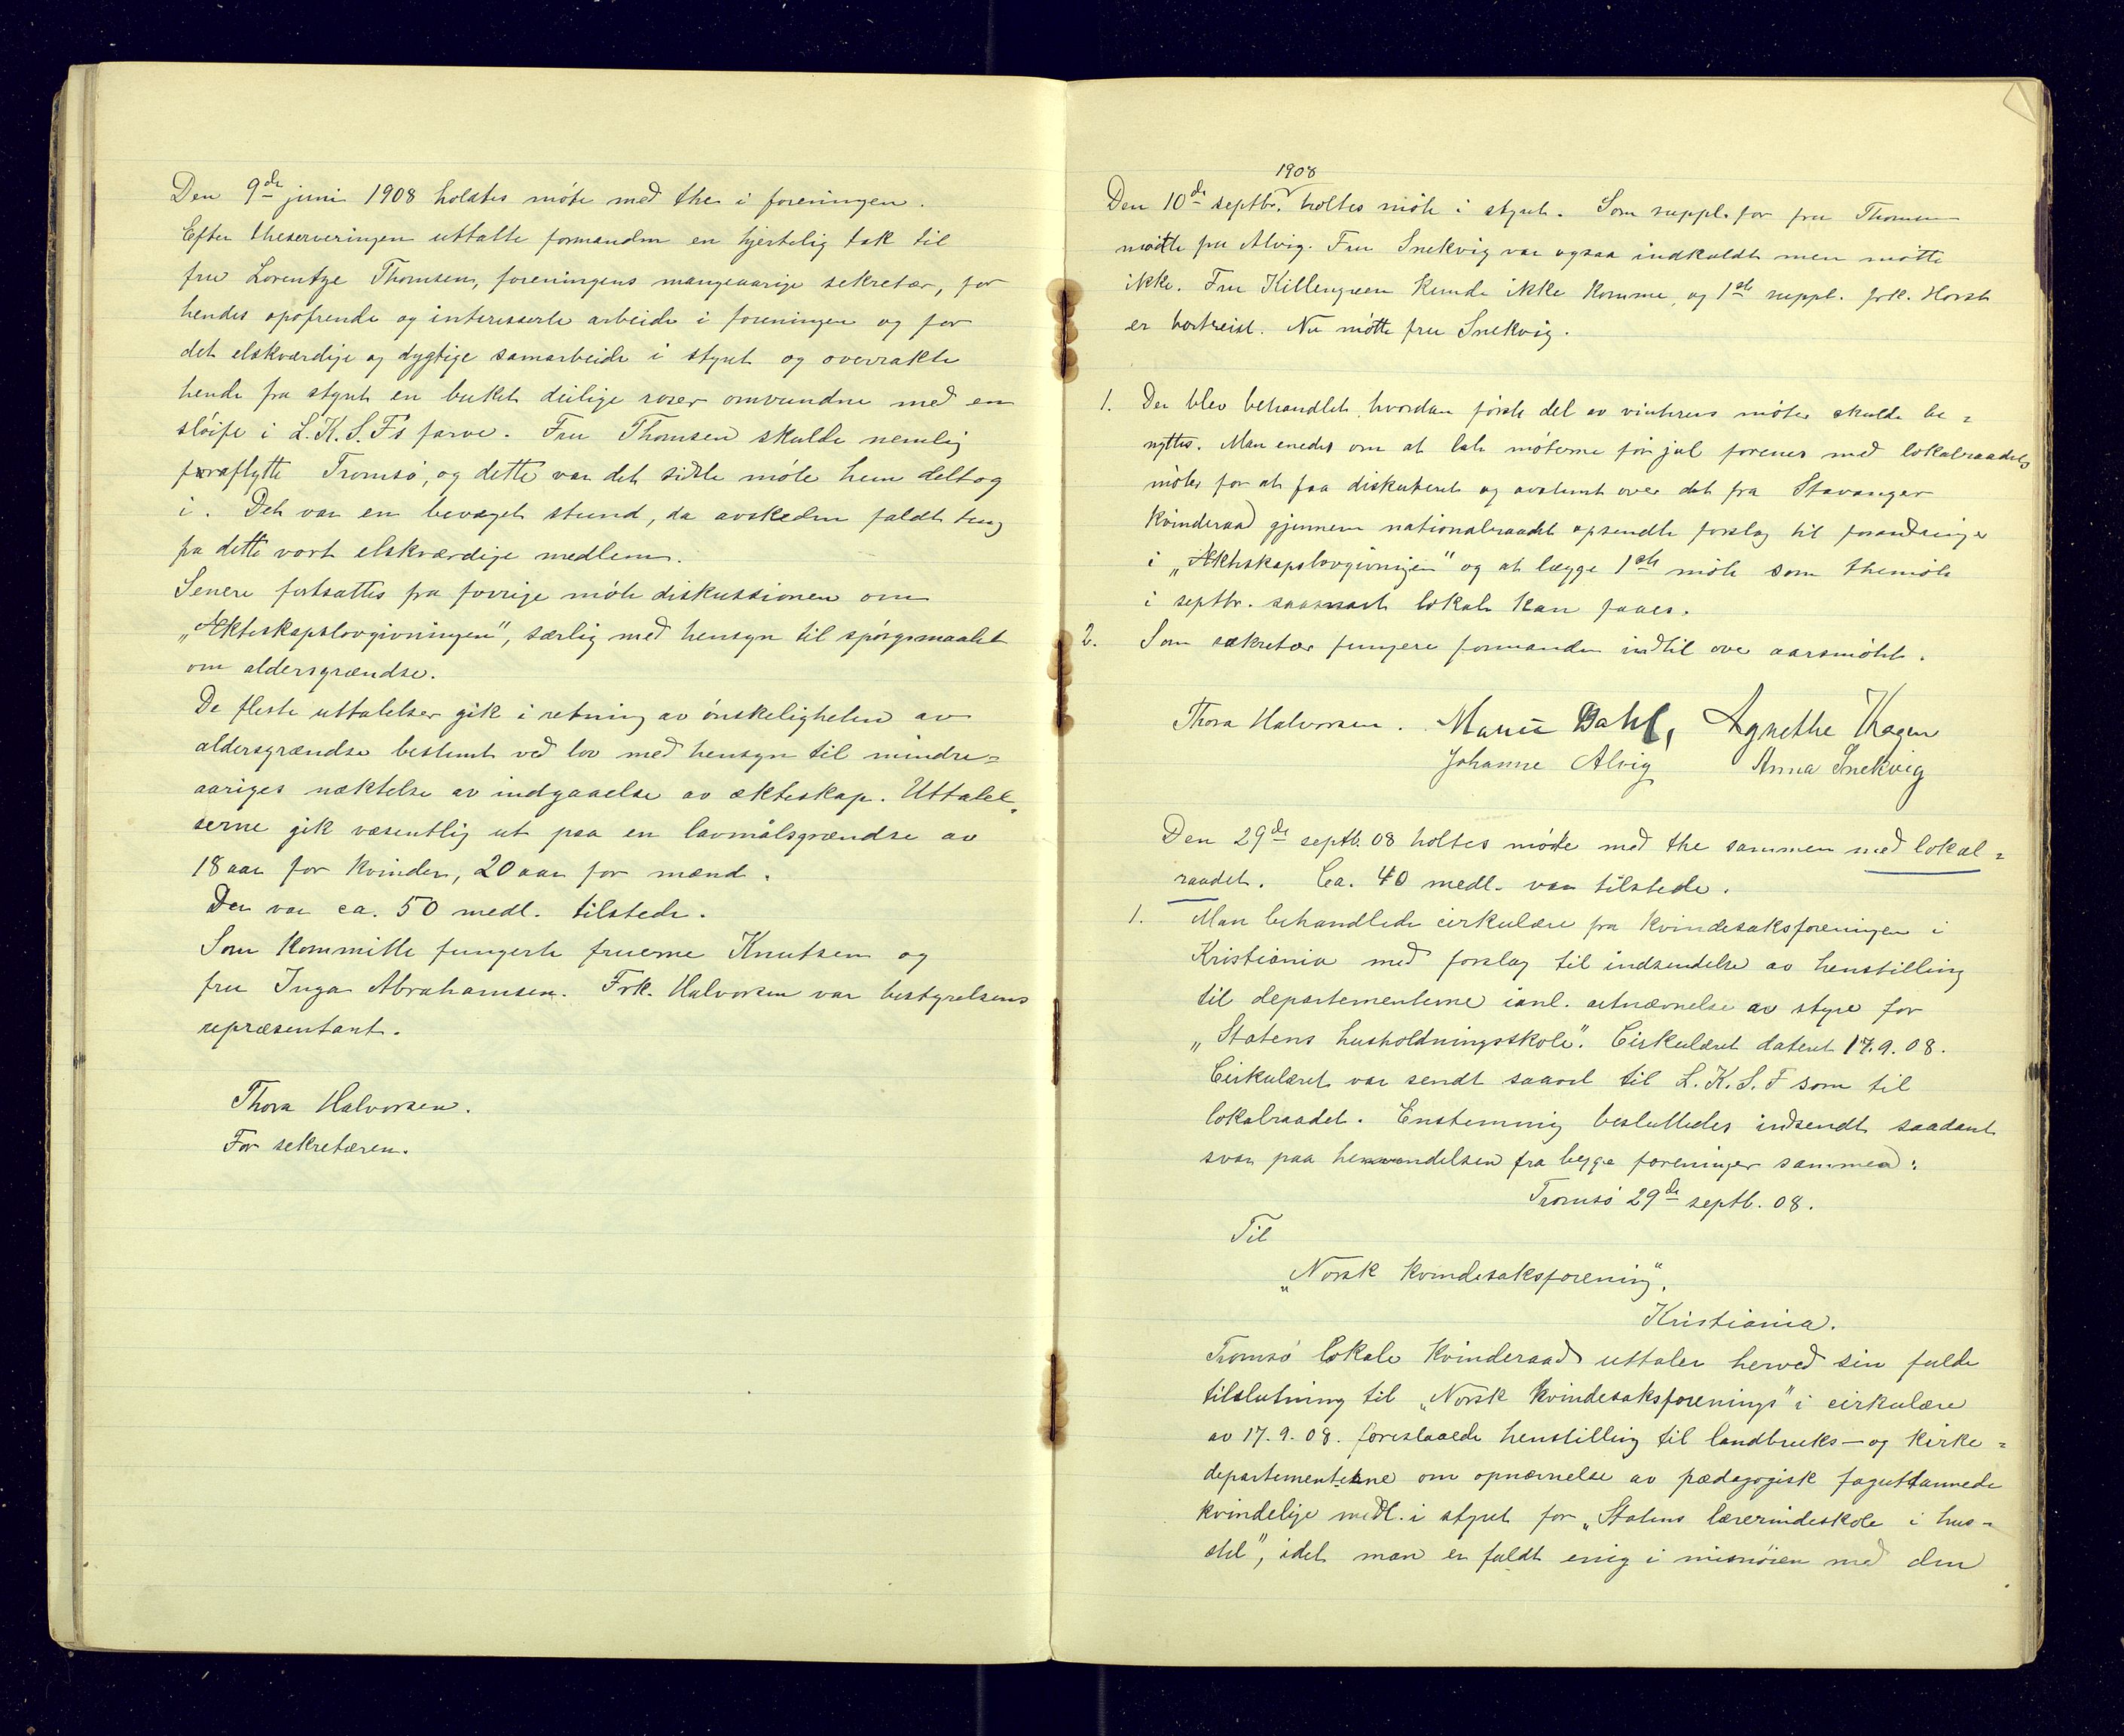 Den 9de juni 1908 holdtes møte med the i foreningen.
Efter theserveringen uttalte formanden en hjertelig tak til
fru Lorentze Thomsen, foreningens mangeaarige sekretær, for
hendes opofrende og interesserte arbeide i foreningen og for
det elskværdige og dygtige samarbeide i styret og overrakte
hende fra styret en buket deilige roser omvundne med en
sløife i L.K.S.F's farve. Fru Thomsen skulde nemlig
fraflytte Tromsø, og dette var det sidste møte hun deltog
i. Det var en bevæget stund, da avskeden faldt tung
fra dette vort elskværdige medlem.
Senere fortsattes fra forrige møte diskussionen om
„Ækteskapslovgivningen", særlig med hensyn til spørgsmaalet
om aldersgrændse.
De fleste uttalelser gik i retning av ønskeligheten av
aldersgrændse bestemt ved lov med hensyn til mindre=
aariges nektelse av indgaaelse av ekteskap. Uttalel=
serne gik væsentlig ut paa en lavmålsgrændse av
18 aar for kvinder, 20 aar for mænd.
Der var ca. 50 medl. tilstede.
Som kommitte fungerte fruerne Knutsen og
fru Inga Abrahamsen. Frk. Halvorsen var bestyrelsens
repræsentant.
Thora Halvorsen.
For sekretæren.
1908
Den 10de septbr. holtes møte i styret. Som suppl. for fru Thomsen
møtte fru Alvig. Fru Snekvig var ogsaa indkaldt men møtte
ikke. Fru Killengreen kunde ikke komme, og 1ste suppl. frk. Horst
er bortreist. Nu møtte fru Snekvig.
1. Der blev behandlet hvordan første del av vinterens møter skulde be=
nyttes. Man enedes om at late møterne før jul forenes med lokalraadets
møter for at faa diskuteret og avstemt over det fra Stavanger
Kvinderaad gjennem nationalraadet opsendte forslag til forandringer
i „Ækteskapslovgivningen" og at lægge 1ste møte som themøte
i septbr. saasnart lokale kan faaes.
2. Som sekretær fungerer formanden indtil over aarsmøtet.
Thora Halvorsen. Marie Dahl, Agnethe Hagen
Johanne Alvig Anna Snekvig
Den 29de septb. 08 holtes møte med the sammen med lokal=
raadet. Ca. 40 medl. var tilstede.
1. Man behandlede cirkulære fra kvindesaksforeningen i
Kristiania med forslag til indsendelse av henstilling
til departementerne ianl. utnævnelse av styre for
„Statens husholdningsskole". Cirkulæret dateret 17.9.08.
Cirkulæret var sendt saavel til L.K.S.F som til
lokalraadet. Enstemmig besluttedes indsendt saadant
svar paa henvendelsen fra begge foreninger sammen:
Tromsø 29de septb. 08.
Til
„Norsk Kvindesaksforening".
Kristiania.
Tromsø lokale Kvinderaad uttaler herved sin fulde
tilslutning til „Norsk Kvindesaksforenings" i cirkulære
av 17.9.08. foreslaaede henstilling til landbruks- og kirke=
departementerne om opnævnelse av pædagogisk faguttannede
kvindelige medl. i styret for „Statens lærerindeskole i hus=
stel", idet man er fuldt enig i misnøien med den